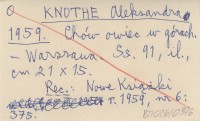 O KNOTHE Aleksandra
1959. Chów owiec w górach.
- Warszawa. Ss. 91, il.,
cm 21 x 15.
Rec.: Nowe Książki
r. 1959, nr. 6:
375.